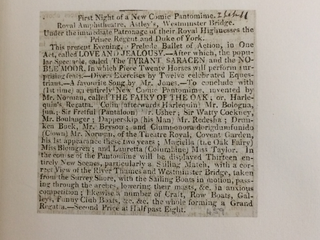 First Night of a New Comic Pantomime.
Royal Amphitheatre, Astley's, Westminster Bridge.
Under the immediate Patronage of their Royal Highnesses the
Prince Regent and Duke of York.
This present Evening, a Prelude Ballet of Action, in One
Act, called LOVE AND JEALOUSY.—After which, the popu-
lar Spectacle, called The TYRANT SARACEN and the NO-
BLE MOOR, in which Piece Twenty Horses will perform sur-
prising feats.—Divers Exercises by Twelve celebrated Eques-
trians.—A favourite Song by Mr. Jones.—To conclude with
(1st time) an entirely New Comic Pantomime, invented by
Mr. Norman, called THE FAIRY OF THE OAK; or, Harle-
quin's Regatta. Colin (afterwards Harlequin) Mr. Bologna,
jun.; Sir Fretful (Pantaloon) Mr. Usher; Sir Watty Cockney,
Mr. Boutanger; Dapperwig (his Man) Mr. Redesha;
Buck, Mr. Brynor; and
(Clown) Mr. Norman, of the Theatre Royal, Covent Garden,
his 1st appearance these two years; Morisila (the Oak Fairy)
Miss Blomgren; and Lauretta (Columbine) Miss Taylor. In
the course of the Pantomime will be displayed Thirteen en-
tirely New Scenes, particularly a Sailing Match, with a cor-
rect View of the River Thames and Westminster Bridge, taken
from the Surrey Shore, with the Sailing Boats in motion, pass-
ing through the arches, lowering their masts, &c. in anxious
competition; likewise a number of Craft, Row Boats, Gal-
leys, Funny Club Boats, &c. &c. the whole forming a Grand
Regatta.—Second Price at Half past Eight.